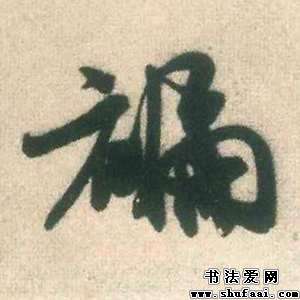 禍
书法爱网
www.shufaai.com